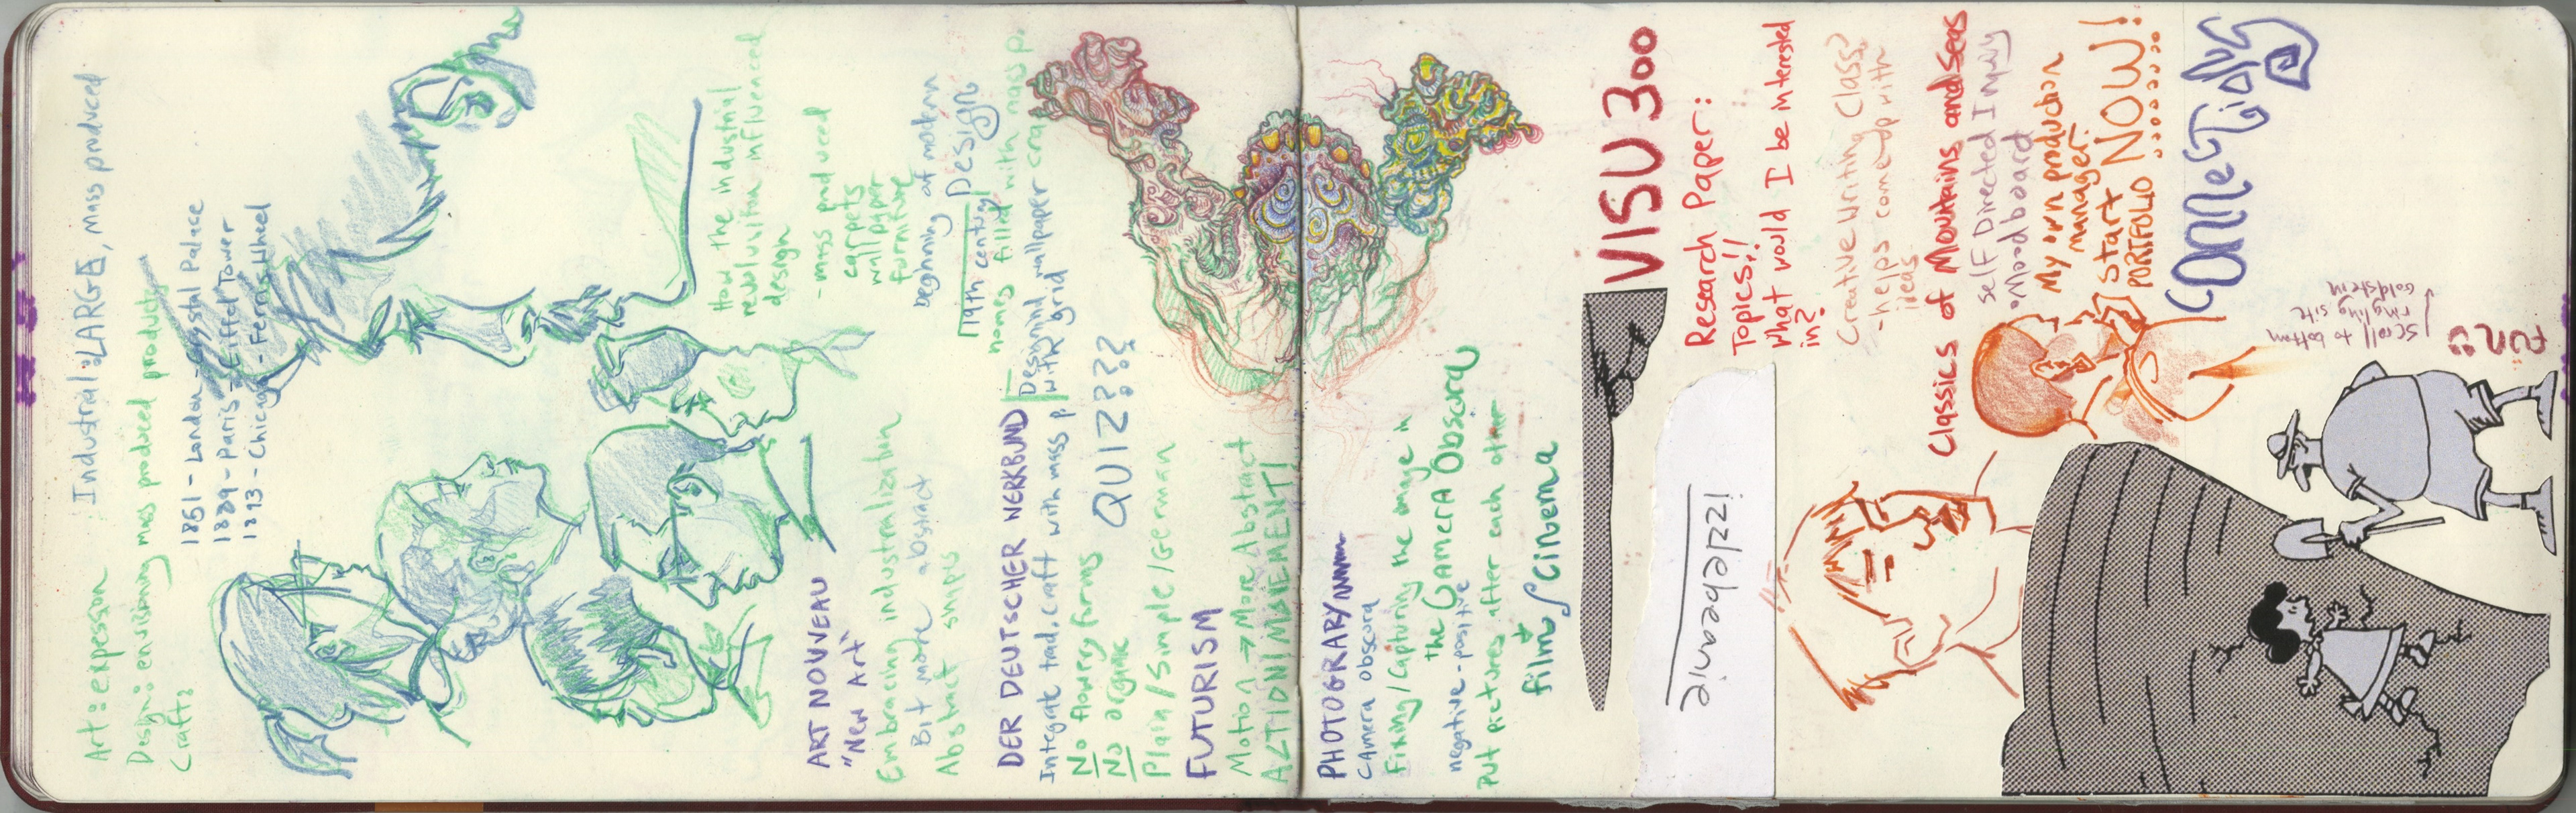 Art: expession
Industrial: LARGE, mass produced
Design: envisioning mass produced products
Craft:
1851 - London - Crystal Palace
1889 - Paris - Eiffel Tower
1893 - Chicago - Ferris Wheel
How the industrial
revolution influenced
design
- mass produced
carpets
wallpaper
furniture
ART NOUVEAU
"New Art"
Embracing industrialization
Bit more abstract
Abstract shapes
beginning of modern
Design
19th century
homes filled with mass p.
Designing wallpaper
with grid
DER DEUTSCHER WERKBUND
Integrate trad. craft with mass p.
No flowery forms
No organic
Plain/Simple/German
QUIZ???
FUTURISM
Motion → More Abstract
ACTION/MOVEMENT!
PHOTOGRAPHY
Camera obscura
Fixing/Capturing the image in
the CAMERA Obscura
negative-positive
Put pictures after each other
film + Cinema
VISU 300
Research Paper:
Topics!!
What would I be interested
in?
Creative Writing Class?
- helps come up with
ideas
Classics of Mountains and Seas
Self Directed Inquiry
• Moodboard
My own production
manager
start NOW!
PORTFOLIO
scroll to bottom
ringling site
Goldstein
FUN